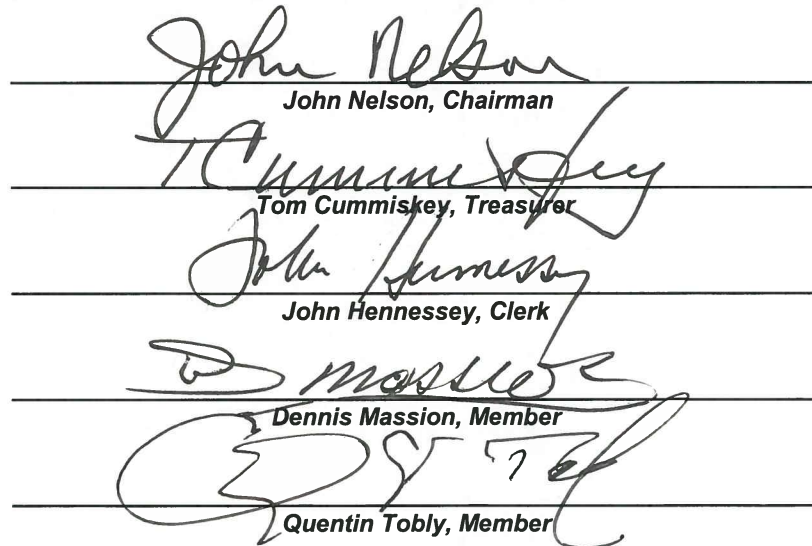 John Nelson
John Nelson, Chairman
T Cummiskey
Tom Cummiskey, Treasurer
John Hennessy
John Hennessey, Clerk
D Massion
Dennis Massion, Member
Quentin Tobly, Member